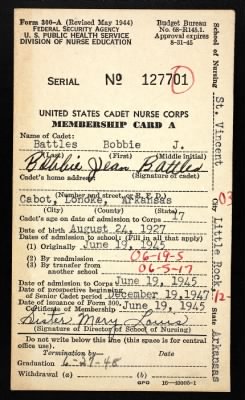 Form 300-A (Revised May 1944)
FEDERAL SECURITY AGENCY
U. S. PUBLIC HEALTH SERVICE
DIVISION OF NURSE EDUCATION
Budget Bureau
No. 68-R145.1.
Approval expires
8-31-45
SERIAL No 127701
UNITED STATES CADET NURSE CORPS
MEMBERSHIP CARD A
Name of Cadet:
Battles Bobbie J.
(Last) (First) (Middle initial)
Bobbie Jean Battles
Cadet's home address (Signature of cadet)
(Number and street or R. F. D.)
Cabot, Lonoke, Arkansas
(City) (County) (State)
Cadet's age on date of admission to Corps 17
Date of birth August 24, 1927
Dates of admission to school: (Fill in all that apply)
(1) Originally June 19, 1945
(2) By readmission 06-19-5
(3) By transfer from
another school 06-5-17
Date of admission to Corps June 19, 1945
Date of prospective beginning
of Senior Cadet period December 19, 1947
Date of issuance of Form 300,
Certificate of Membership June 19, 1945
Sister Mary Louis
(Signature of Director of School of Nursing)
Do not write below this line (this space is for central
office use).
Termination by— Date
Graduation 6-27-48
Withdrawal (a) (b)
GPO 16-18003-1
School of Nursing St. Vincent City Little Rock State Arkansas
03
12-